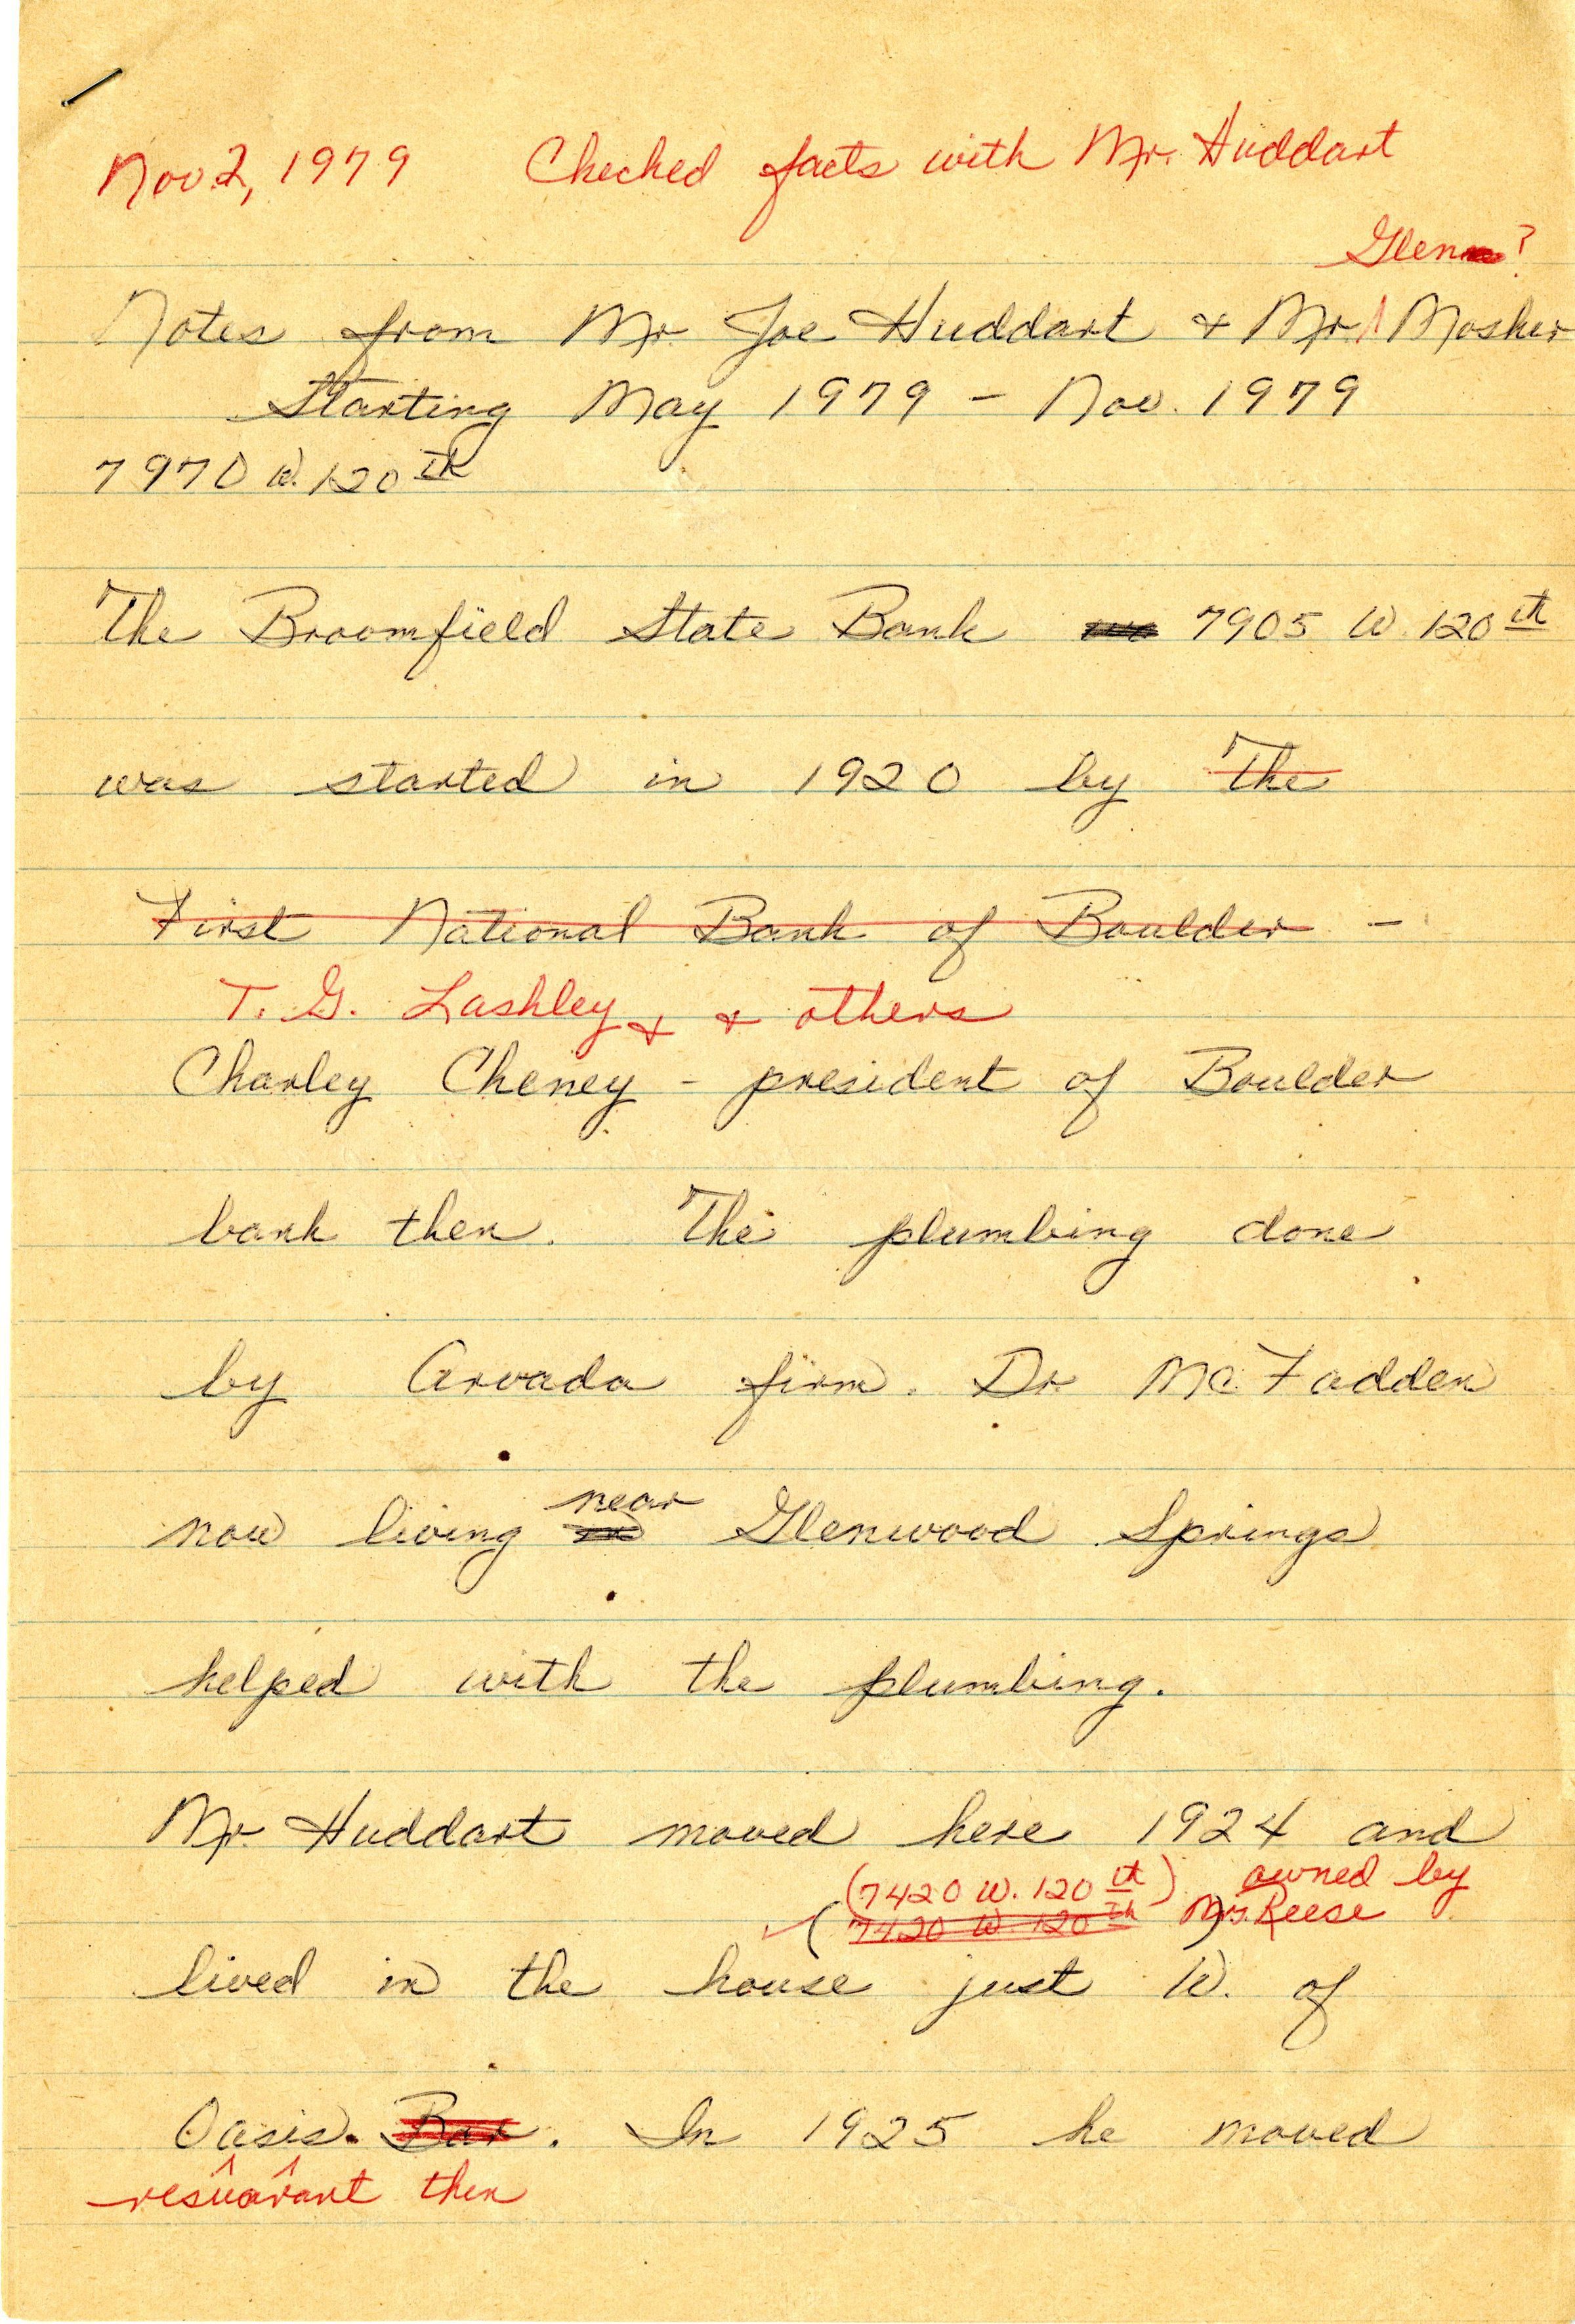 Nov. 2, 1979 Checked facts with Mr. Huddart
Glen ?
Notes from Mr Joe Huddart & Mr. Mosher
Starting May 1979 - Nov. 1979
7970 W. 120th
The Broomfield State Bank 7905 W. 120th
was started in 1920 by The
First National Bank of Boulder -
T. G. Lashley & & others
Charley Cheney - president of Boulder
bank then. The plumbing done
by Arvada firm. Dr McFadden
near
now living Glenwood Springs
helped with the plumbing.
Mr Huddart moved here 1924 and
(7420 W. 120th) owned by
(7420 W. 120th) Mrs. Reese
lived in the house just W. of
Oasis. Bar. In 1925 he moved
resuarant then